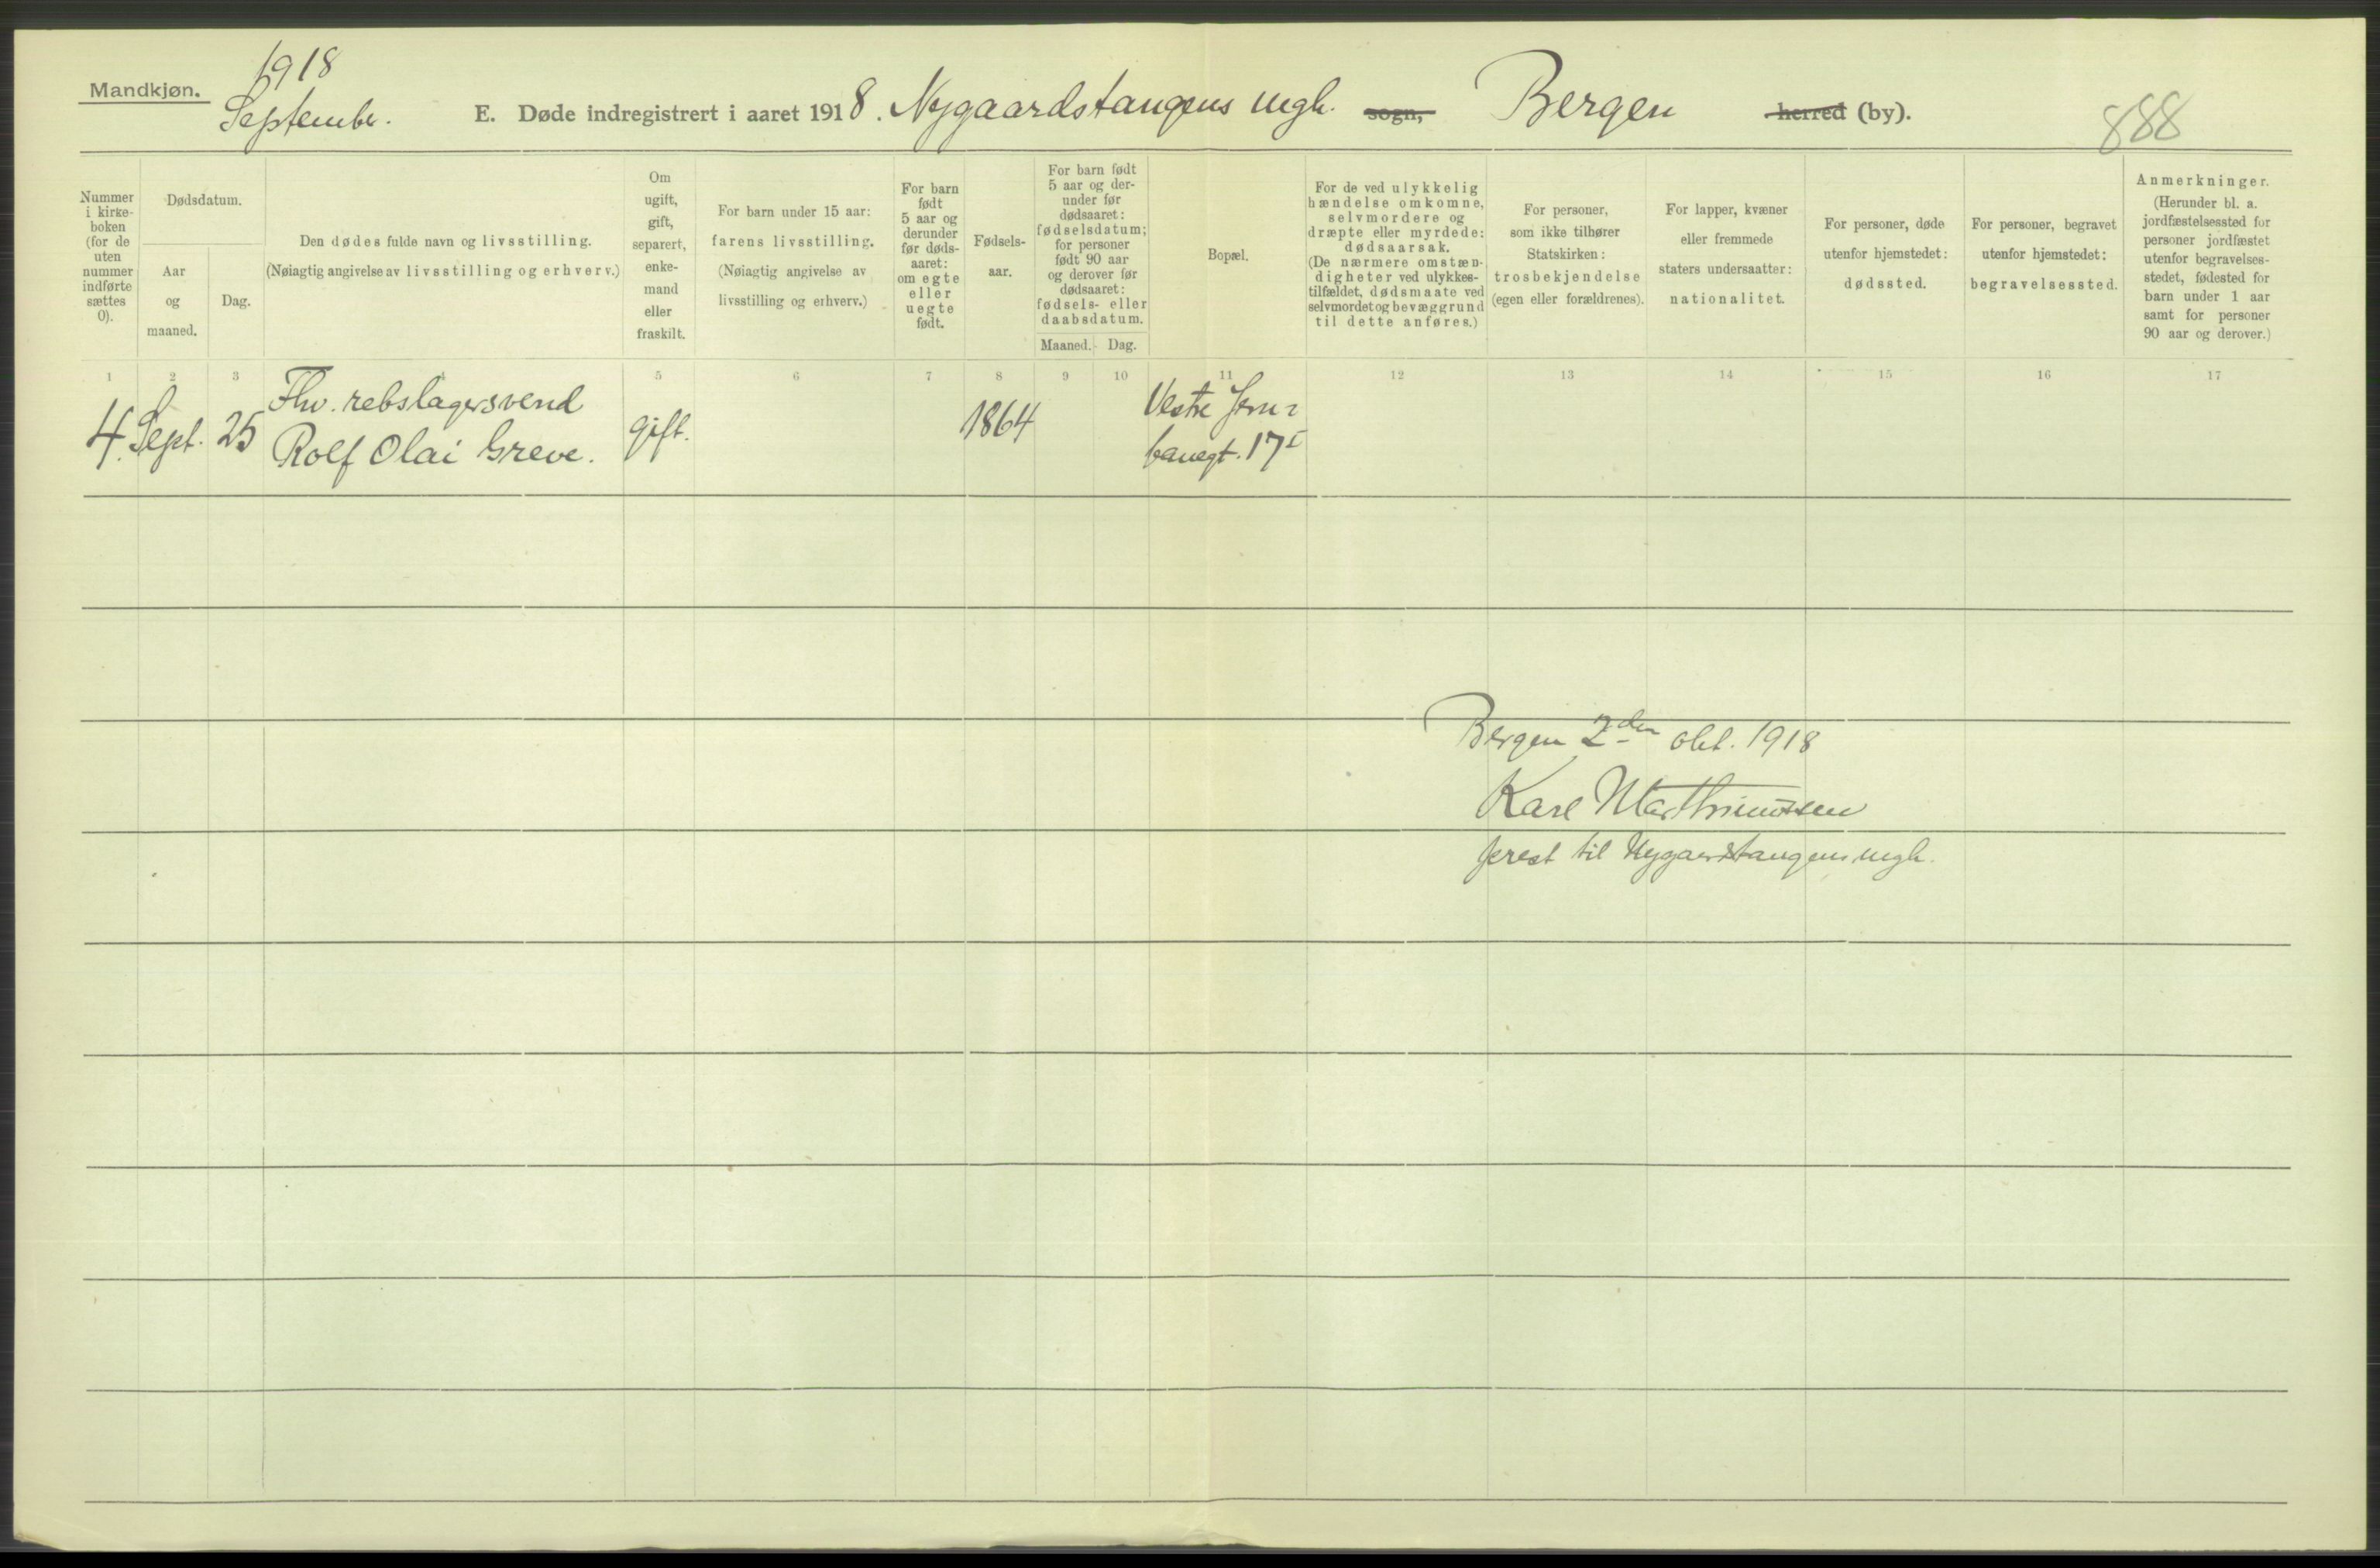 1918
Mandkjøn.
September.
E. Døde indregistrert i aaret 1918. Nygaardstangens mgh. sogn, Bergen herred (by).
888
Nummer
i kirke-
boken
(for de
uten
nummer
indførte
sættes
0).
Dødsdatum.
Aar
og
maaned.
Dag.
Den dødes fulde navn og livsstilling.
(Nøiagtig angivelse av livsstilling og erhverv.)
Om
ugift,
gift,
separert,
enke-
mand
eller
fraskilt.
For barn under 15 aar:
farens livsstilling.
(Nøiagtig angivelse av
livsstilling og erhverv.)
For barn
født
5 aar og
derunder
før døds-
aaret:
om egte
eller
uegte
født.
Fødsels-
aar.
For barn født
5 aar og der-
under før
dødsaaret:
fødselsdatum;
for personer
født 90 aar
og derover før
dødsaaret:
fødsels- eller
daabsdatum.
Maaned. Dag.
Bopæl.
For de ved ulykkelig
hændelse omkomne,
selvmordere og
dræpte eller myrdede:
dødsaarsak.
(De nærmere omstæn-
digheter ved ulykkes-
tilfældet, dødsmaate ved
selvmordet og bevæggrund
til dette anføres.)
For personer,
som ikke tilhører
Statskirken:
trosbekjendelse
(egen eller forældrenes).
For lapper, kvæner
eller fremmede
staters undersaatter:
nationalitet.
For personer, døde
utenfor hjemstedet:
dødssted.
For personer, begravet
utenfor hjemstedet:
begravelsessted.
Anmerkninger.
(Herunder bl. a.
jordfæstelsessted for
personer jordfæstet
utenfor begravelses-
stedet, fødested for
barn under 1 aar
samt for personer
90 aar og derover.)
1 2 3 4 5 6 7 8 9 10 11 12 13 14 15 16 17
Fhv. rebslagersvend
4. Sept. 25 Rolf Olai Greve. gift. 1864
Vestre Jern-
banegt. 17 I
Bergen 2den okt. 1918
Karl Marthinussen
prest til Nygaardstangens mgh.